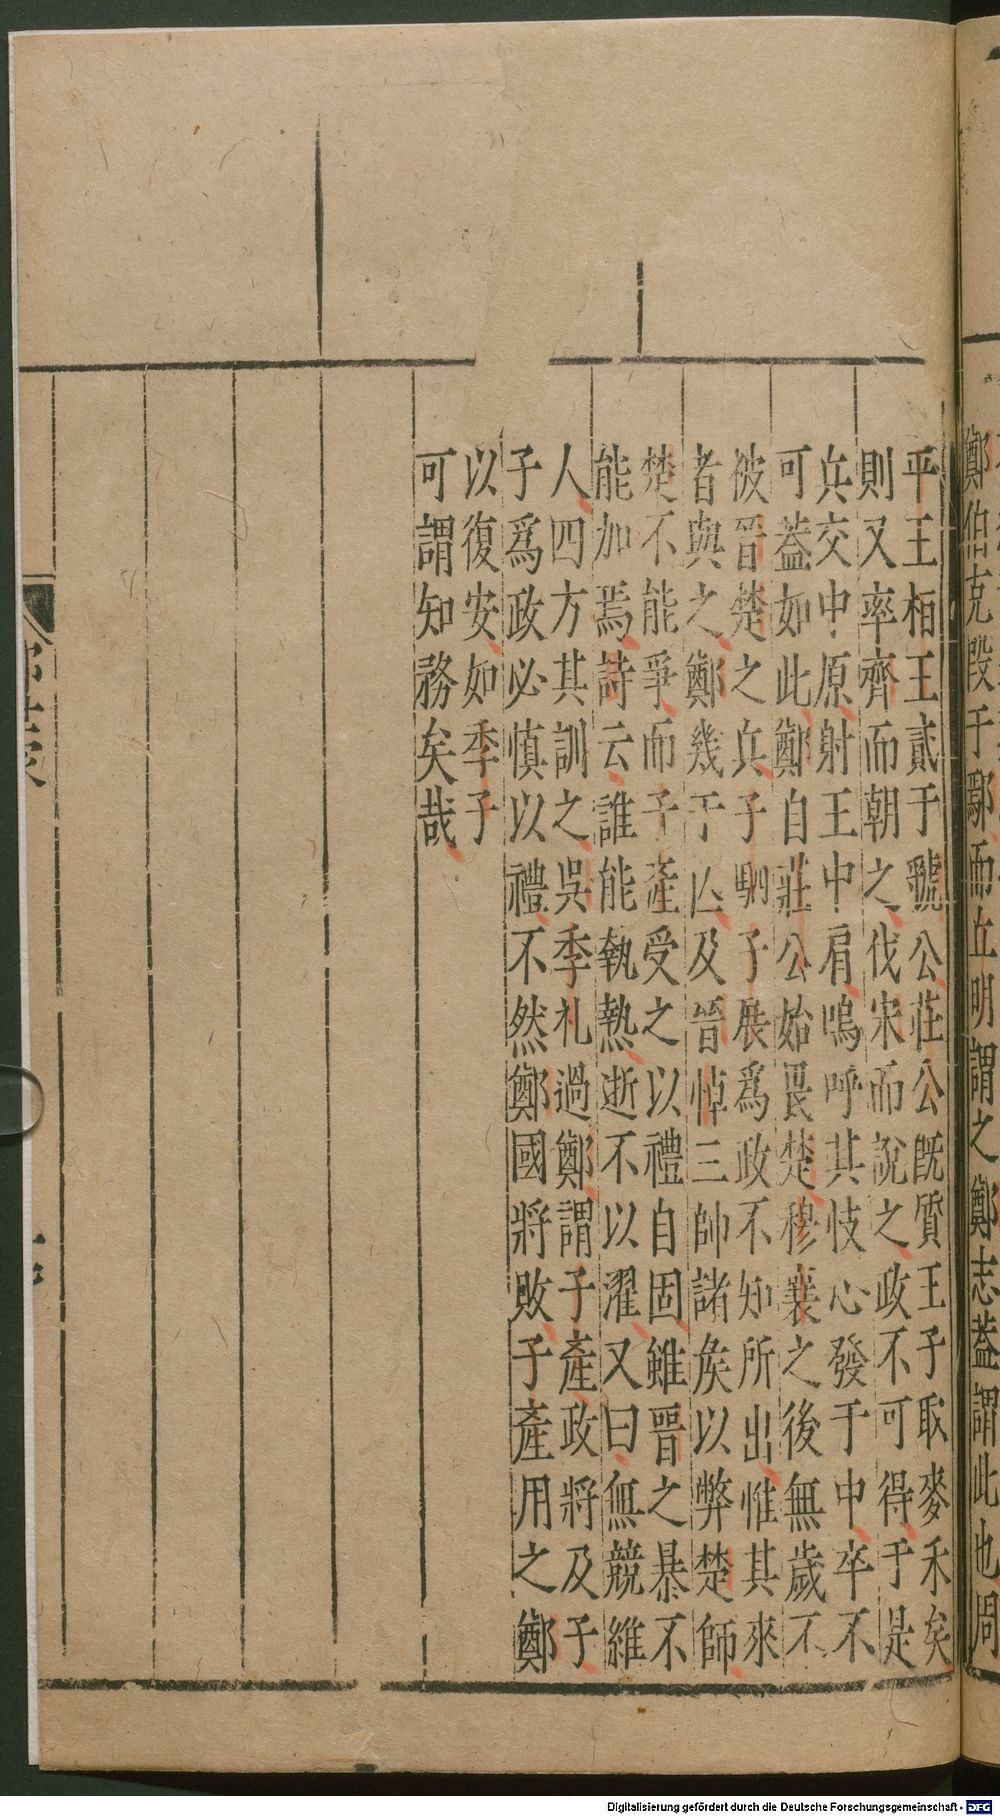 鄭伯克段于鄢而立明謂之鄭志葢謂此也周
平王栢王貳于虢公莊公旣質王子取麥禾矣
則又率齊而朝之伐宋而說之政不可得于是
兵交中原射王中肩嗚呼其忮心發于中卒不
可葢如此鄭自莊公始畏楚穆襄之後無歲不
被晉楚之兵子駟子展爲政不知所出惟其來
者與之鄭幾于亾及晉悼三帥諸矦以弊楚師
楚不能爭而子產受之以禮自固雖晉之暴不
能加焉詩云誰能執熱逝不以濯又曰無競維
人四方其訓之吳季札過鄭謂子產政將及子
子爲政必愼以禮不然鄭國將敗子產用之鄭
以復安如季子
可謂知務矣哉
Digitalisierung gefördert durch die Deutsche Forschungsgemeinschaft - DFG